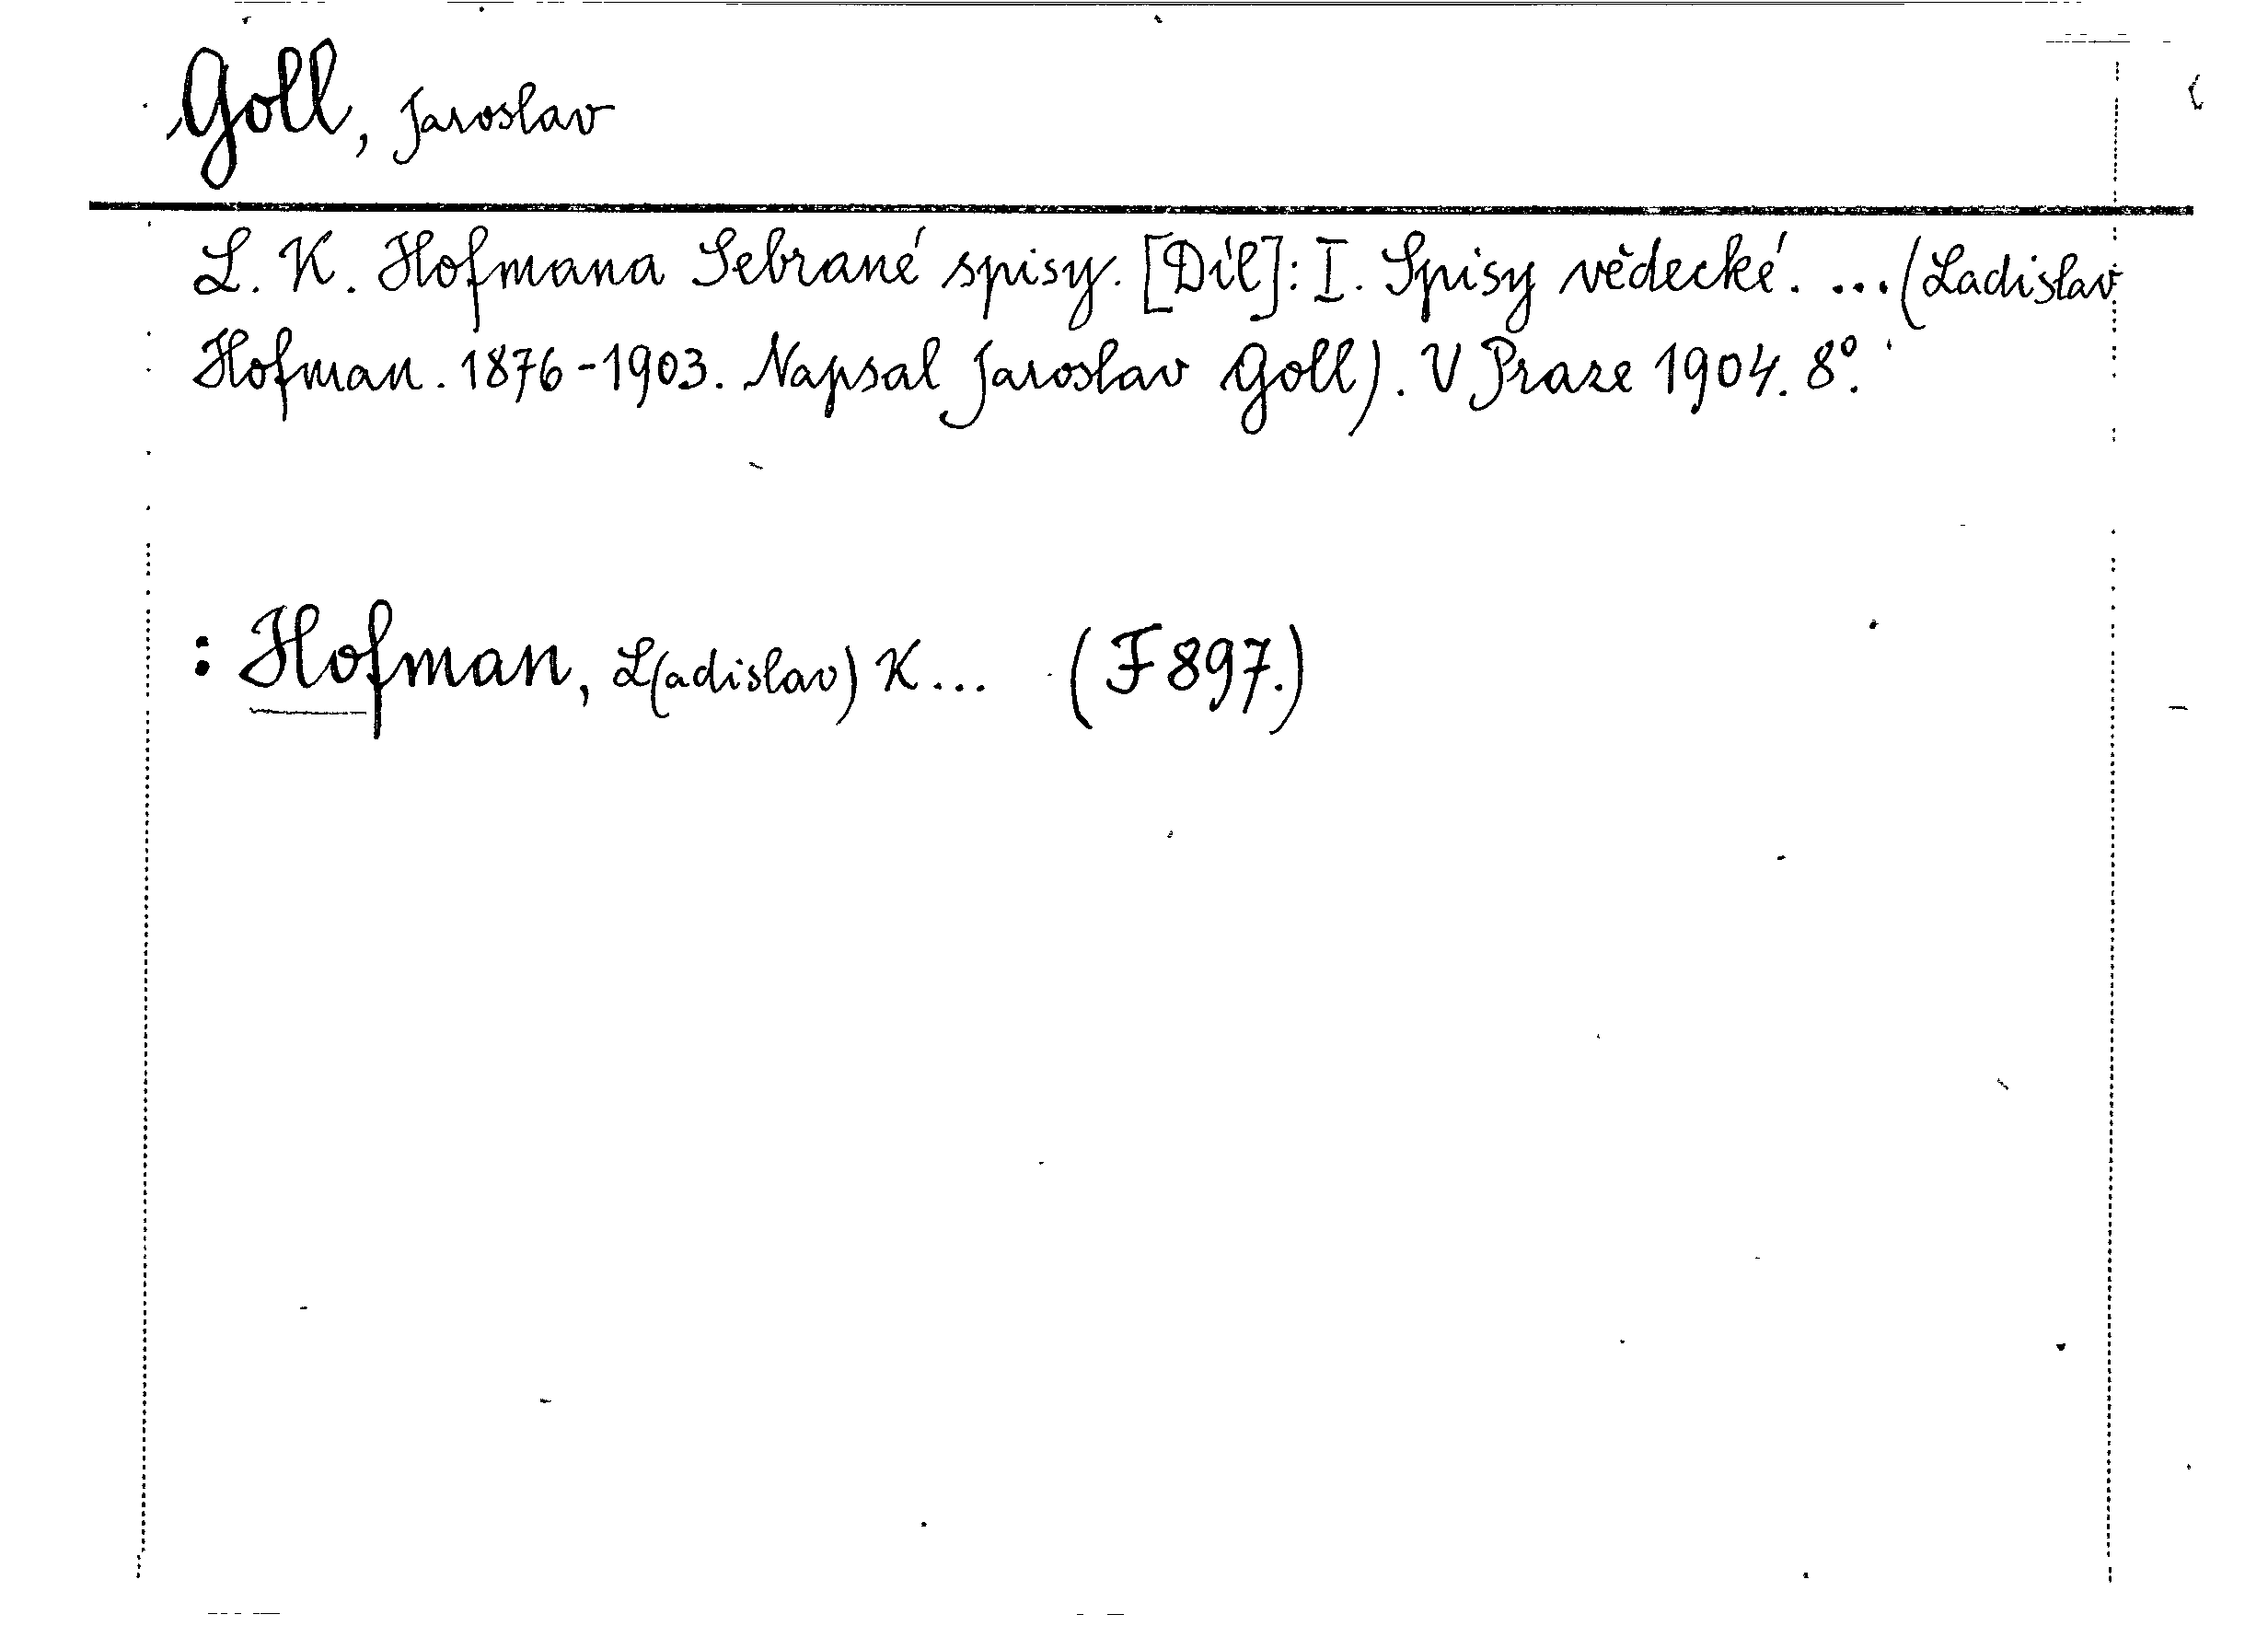 Goll, Jaroslav
L. K. Hofmana Sebrané spisy. [Díl]: I. Spisy vědecké. ... (Ladislav
Hofman. 1876-1903. Napsal Jaroslav Goll). V Praze 1904. 8°.
: Hofman, L(adislav) K... (F 897.)